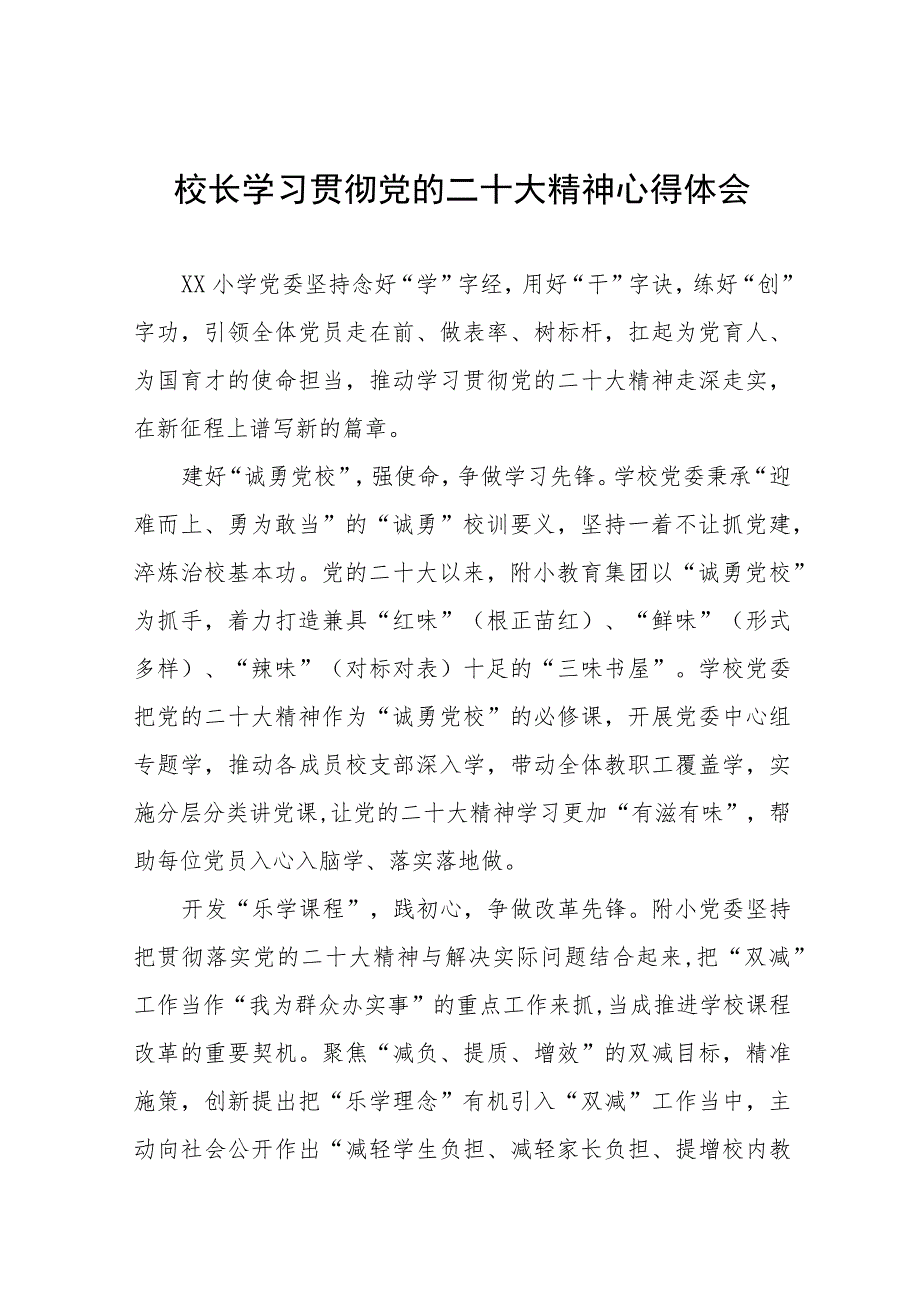 校长学习贯彻党的二十大精神心得体会
XX 小学党委坚持念好“学”字经，用好“干”字诀，练好“创”
字功，引领全体党员走在前、做表率、树标杆，扛起为党育人、
为国育才的使命担当，推动学习贯彻党的二十大精神走深走实，
在新征程上谱写新的篇章。
建好“诚勇党校”，强使命，争做学习先锋。学校党委秉承“迎
难而上、勇为敢当”的“诚勇”校训要义，坚持一着不让抓党建，
淬炼治校基本功。党的二十大以来，附小教育集团以“诚勇党校”
为抓手，着力打造兼具“红味”（根正苗红）、“鲜味”（形式
多样）、“辣味”（对标对表）十足的“三味书屋”。学校党委
把党的二十大精神作为“诚勇党校”的必修课，开展党委中心组
专题学，推动各成员校支部深入学，带动全体教职工覆盖学，实
施分层分类讲党课,让党的二十大精神学习更加“有滋有味”，帮
助每位党员入心入脑学、落实落地做。
开发“乐学课程”，践初心，争做改革先锋。附小党委坚持
把贯彻落实党的二十大精神与解决实际问题结合起来,把“双减”
工作当作“我为群众办实事”的重点工作来抓,当成推进学校课程
改革的重要契机。聚焦“减负、提质、增效”的双减目标，精准
施策，创新提出把“乐学理念”有机引入“双减”工作当中，主
动向社会公开作出“减轻学生负担、减轻家长负担、提增校内教